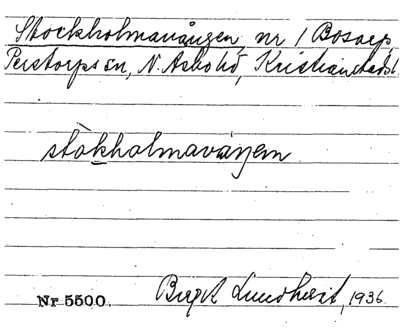 Stockholmavången, nr 1 Bosarp,
Perstorps sn, N. Åsbo hd, Kristianstads l.
stòkholmaváŋen
Nr 5500. Birgit Lundqvist, 1936.